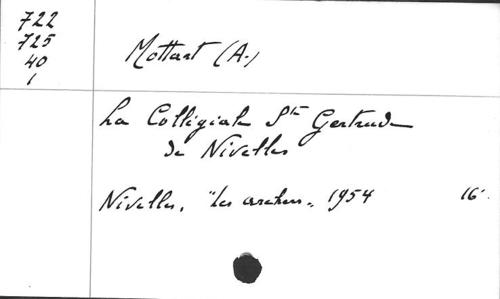 722
725
40
1
Mottart (A.)
La Collégiale Ste Gertrude
de Nivelles
Nivelles, "Les archers", 1954 16°.